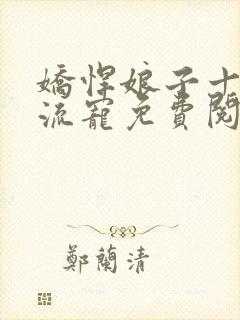 嬌悍娘子十
流寵免費閱
鄭蘭清